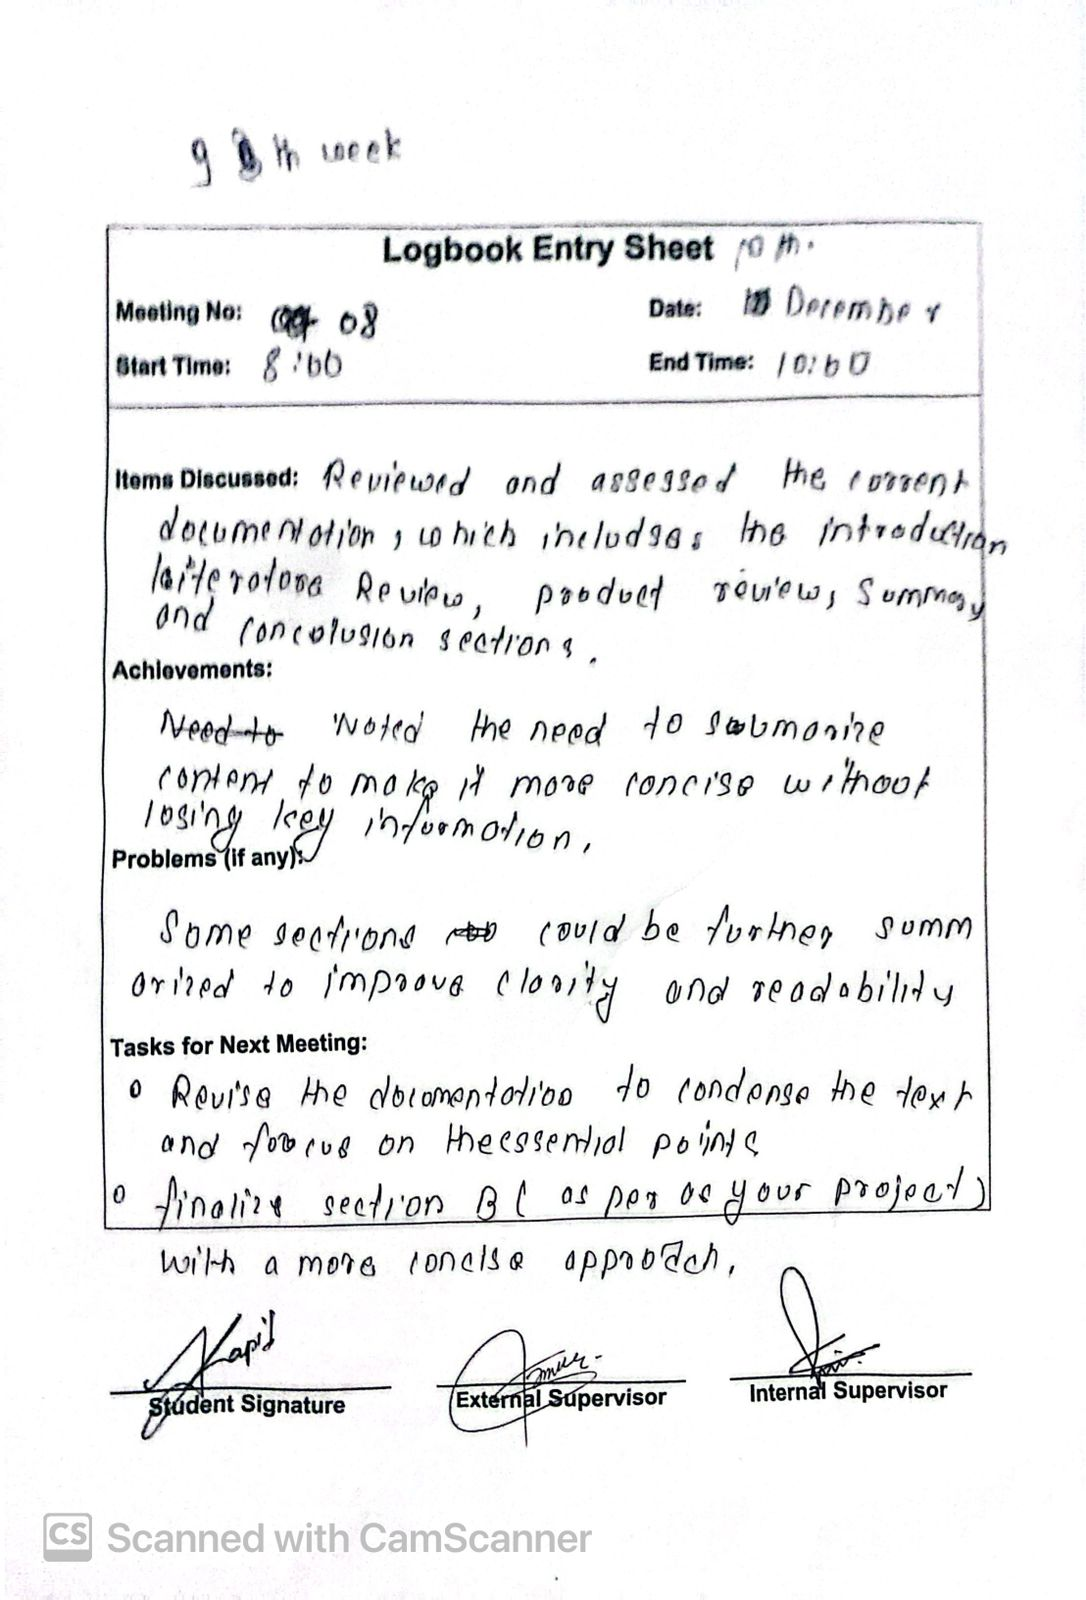 9 th week
Logbook Entry Sheet 10 th.
Meeting No: 08 Date: December
Start Time: 8:00 End Time: 10:00
Items Discussed: Reviewed and assessed the current
documentation, which includes the introduction
Literature Review, product review, Summary
and concolusion sections.
Achievements:
Need to Noted the need to submarize
content to make it more concise without
losing key information.
Problems (if any):
Some sections could be further summ
arized to improve clarity and readability
Tasks for Next Meeting:
o Revise the documentation to condense the text
and foocus on the essential points
o finalize section B ( as per as your project)
with a more concise approach.
Kapil
Student Signature External Supervisor Internal Supervisor
CS Scanned with CamScanner